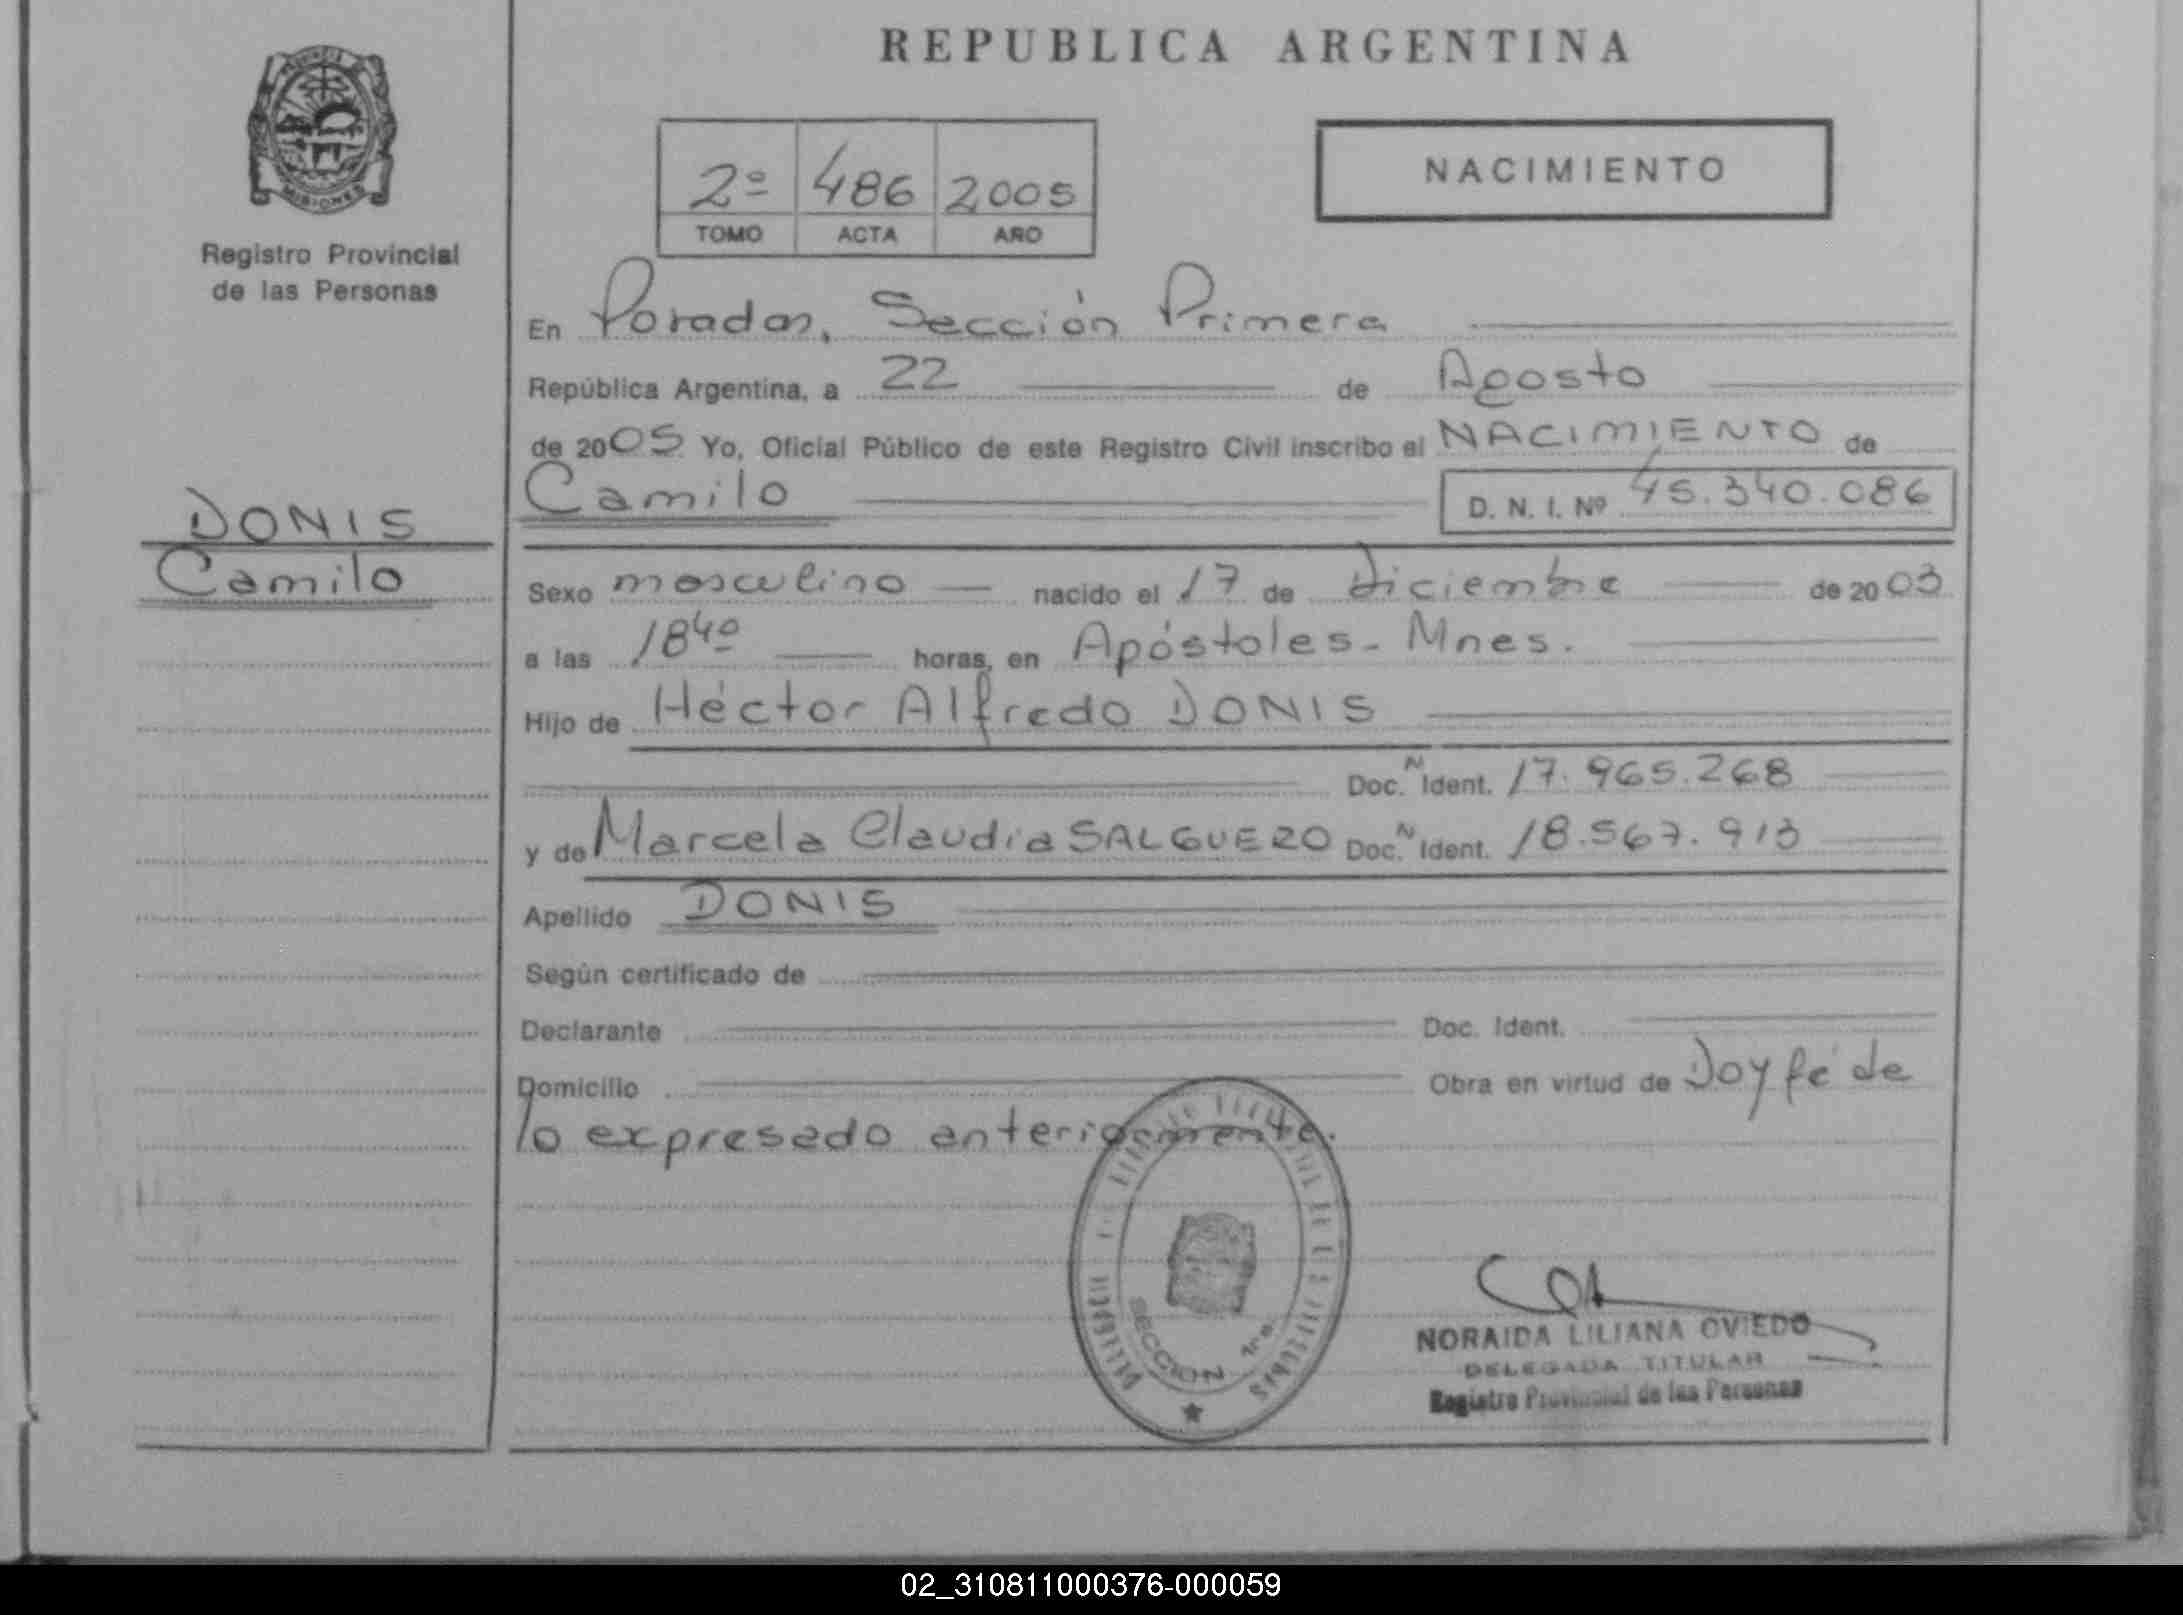 REPUBLICA ARGENTINA
MISIONES
Registro Provincial
de las Personas
2º 486 2005
TOMO ACTA AÑO
NACIMIENTO
En Posadas, Sección Primera
República Argentina, a 22 de Agosto
de 2005 Yo, Oficial Público de este Registro Civil inscribo el NACIMIENTO de
Camilo D. N. I. Nº 45.340.086
DONIS
Camilo
Sexo masculino nacido el 17 de Diciembre de 2003
a las 18⁴⁰ horas, en Apóstoles - Mnes.
Hijo de Héctor Alfredo DONIS
Doc. N Ident. 17.965.268
y de Marcela Claudia SALGUERO Doc. N Ident. 18.567.913
Apellido DONIS
Según certificado de
Declarante Doc. Ident.
Domicilio Obra en virtud de Doy fé de
lo expresado anteriormente.
SECCION 1ra.
NORAIDA LILIANA OVIEDO
DELEGADA TITULAR
Registro Provincial de las Personas
02_310811000376-000059